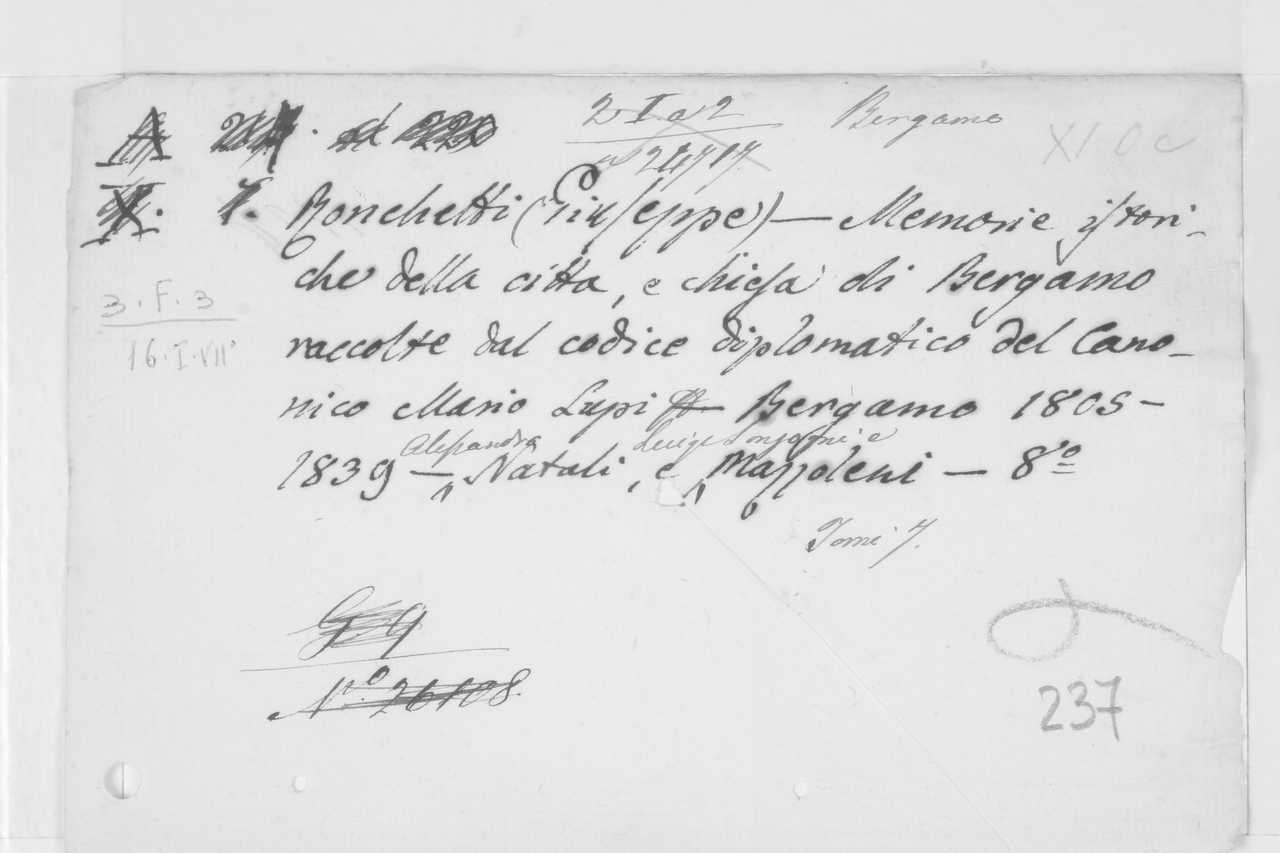 2 I a 2 Bergamo
XI O c
24717
7. Ronchetti (Giuseppe) — Memorie istori-
che della citta, e chiesa di Bergamo
3. F. 3
raccolte dal codice diplomatico del Cano-
16. I. VII
nico Mario Lupi — Bergamo 1805-
Alessandro Luigi Sonzogni e
1839 —, Natali, e, Mazzoleni — 8º
Tomi 7.
G. 9
Nº 26108.
237